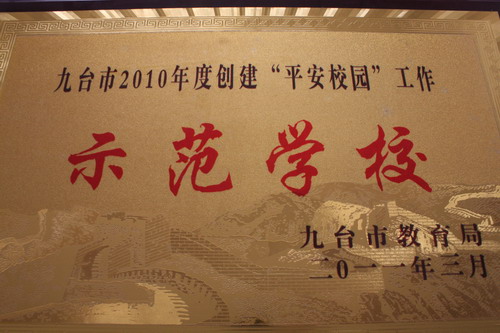 九台市2010年度创建“平安校园”工作
示范学校
九台市教育局
二〇一一年三月